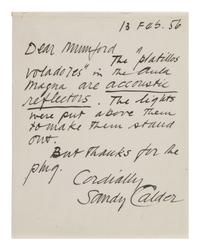 13 Feb. 56
Dear Mumford
The "platillos
voladores" in the Aula
Magna are accoustic
reflectors. The lights
were put above them
to make them stand
out.
But thanks for the
plug.
Cordially
Sandy Calder